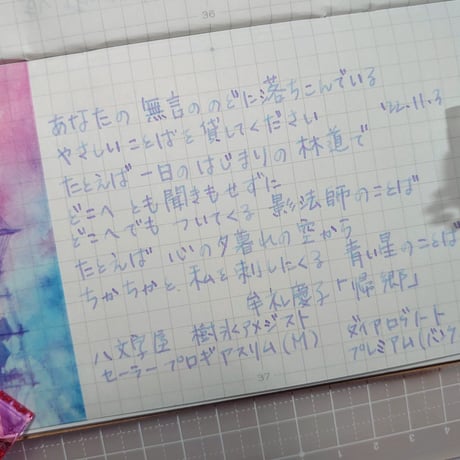 36
あなたの 無言ののどに落ちこんでいる
やさしいことばを貸してください
'22.11.3
たとえば 一日のはじまりの 林道で
どこへ とも聞きもせずに
どこへでも ついてくる 影法師のことば
たとえば 心の夕暮れの空から
ちかちかと、私を刺しにくる 青い星のことば
牟礼慶子「帰郷」
八文字屋 樹氷アメジスト ダイアログノート
セーラー プロギアスリム(M) プレミアム(バンク
37